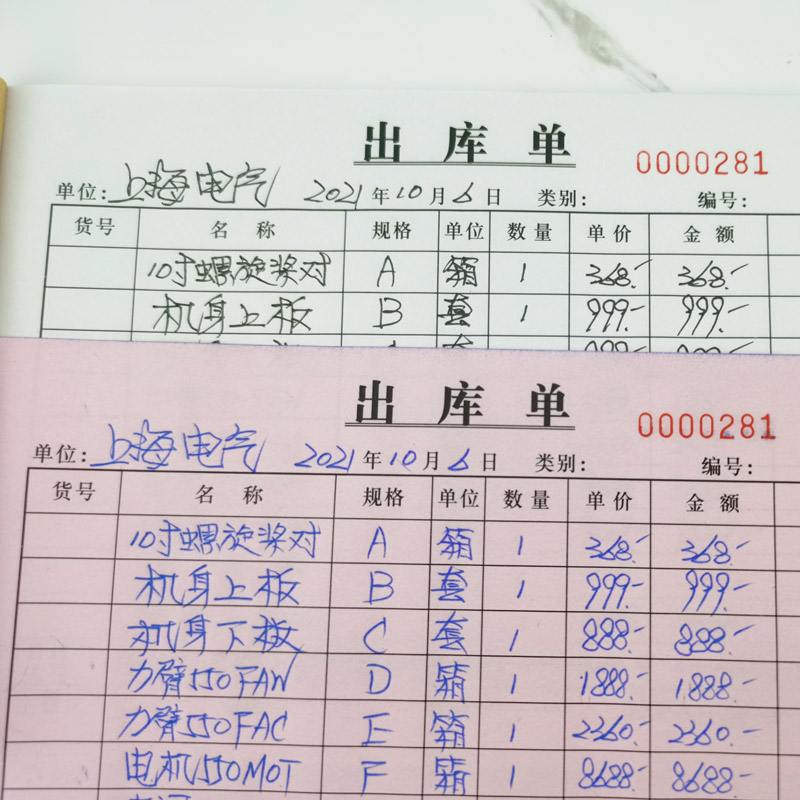 出库单
0000281
单位:上海电气 2021年10月6日 类别: 编号:
货号 名称 规格 单位 数量 单价 金额
10寸螺旋桨对 A 箱 1 368.- 368.-
机身上板 B 套 1 999.- 999.-
出库单
0000281
单位:上海电气 2021年10月6日 类别: 编号:
货号 名称 规格 单位 数量 单价 金额
10寸螺旋桨对 A 箱 1 368.- 368.-
机身上板 B 套 1 999.- 999.-
机身下板 C 套 1 888.- 888.-
力臂550FAW D 箱 1 1888.- 1888.-
力臂550FAC E 箱 1 2360.- 2360.-
电机550MOT F 箱 1 8688.- 8688.-